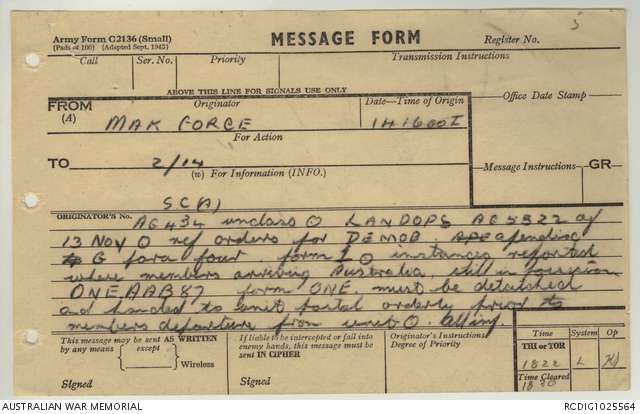 5
Army Form C2136 (Small)
(Pads of 100) (Adapted Sept. 1942)
MESSAGE FORM
Register No.
Call Ser. No. Priority Transmission Instructions
ABOVE THIS LINE FOR SIGNALS USE ONLY
FROM
(A)
Originator
Date—Time of Origin
Office Date Stamp
MAK FORCE 141600I
For Action
TO 2/14
(w) For Information (INFO.)
Message Instructions GR
SC(A)
ORIGINATOR'S No.
AG434 unclass O LANDOPS AG5322 of
13 Nov O ref orders for DEMOB. apendix
G para four form I O instances reported
where members arriving Australia still in possession
ONE AAB87 form ONE must be detatched
and handed to unit postal orderly prior to
members departure from unit O.
This message may be sent AS WRITTEN
by any means { except } Wireless
Signed
If liable to be intercepted or fall into
enemy hands, this message must be
sent IN CIPHER
Signed
Originator's Instructions
Degree of Priority
Time System Op
THI or TOR
1822 L
Time Cleared
1830
AUSTRALIAN WAR MEMORIAL
RCDIG1025564